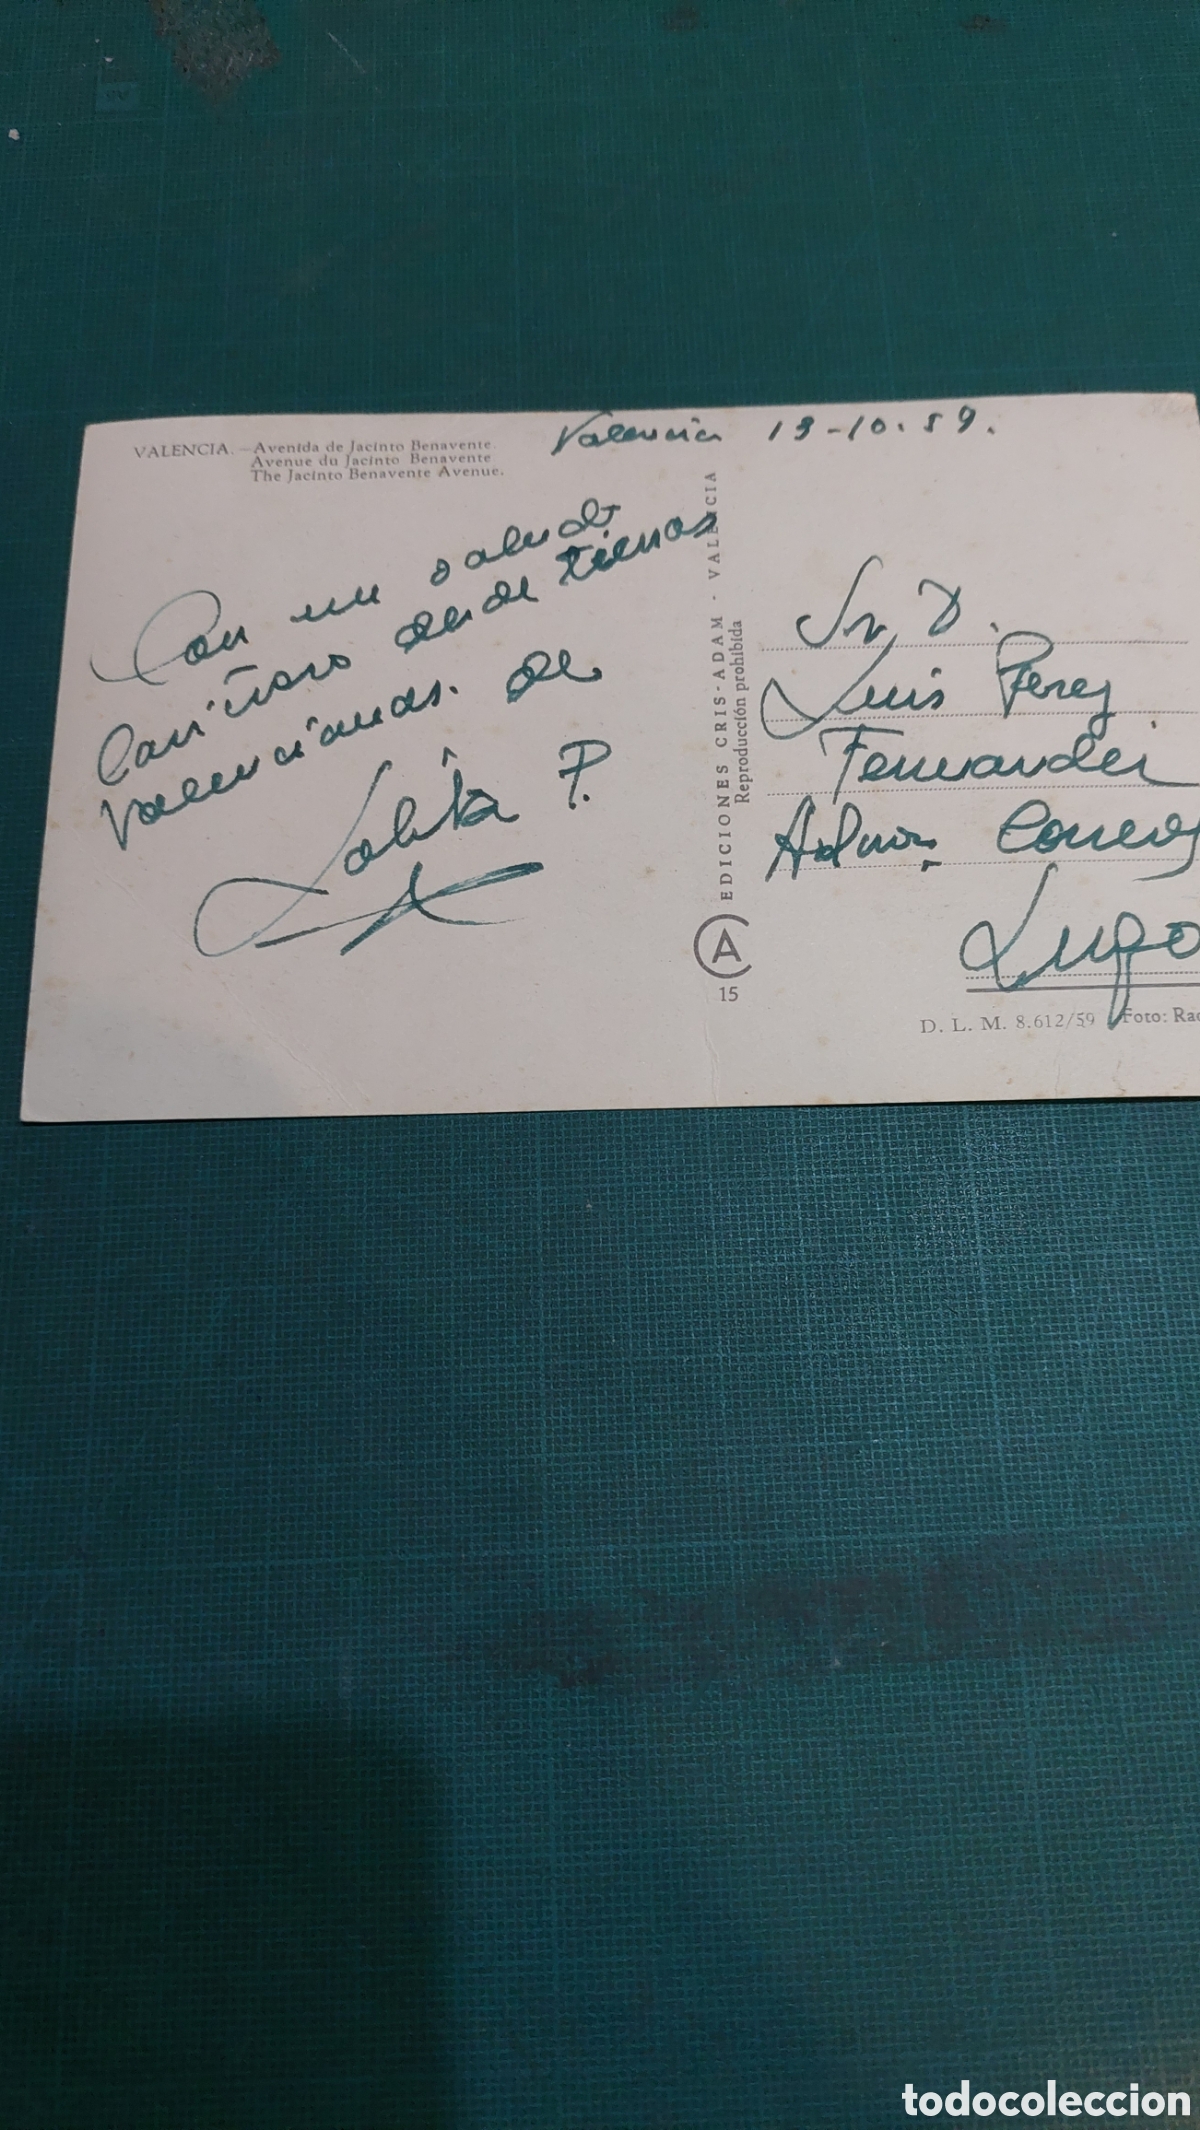 VALENCIA.—Avenida de Jacinto Benavente.
Avenue du Jacinto Benavente
The Jacinto Benavente Avenue.
Valencia 13-10.59.
Con un saludo
Cariñoso desde tierras
Valencianas. de
Lolita P.
EDICIONES CRIS-ADAM - VALENCIA
Reproducción prohibida
CA
15
Sr. D.
Luis Perez
Fernandez
Admor. Correos
Lugo
D. L. M. 8.612/59 Foto:
todocoleccion